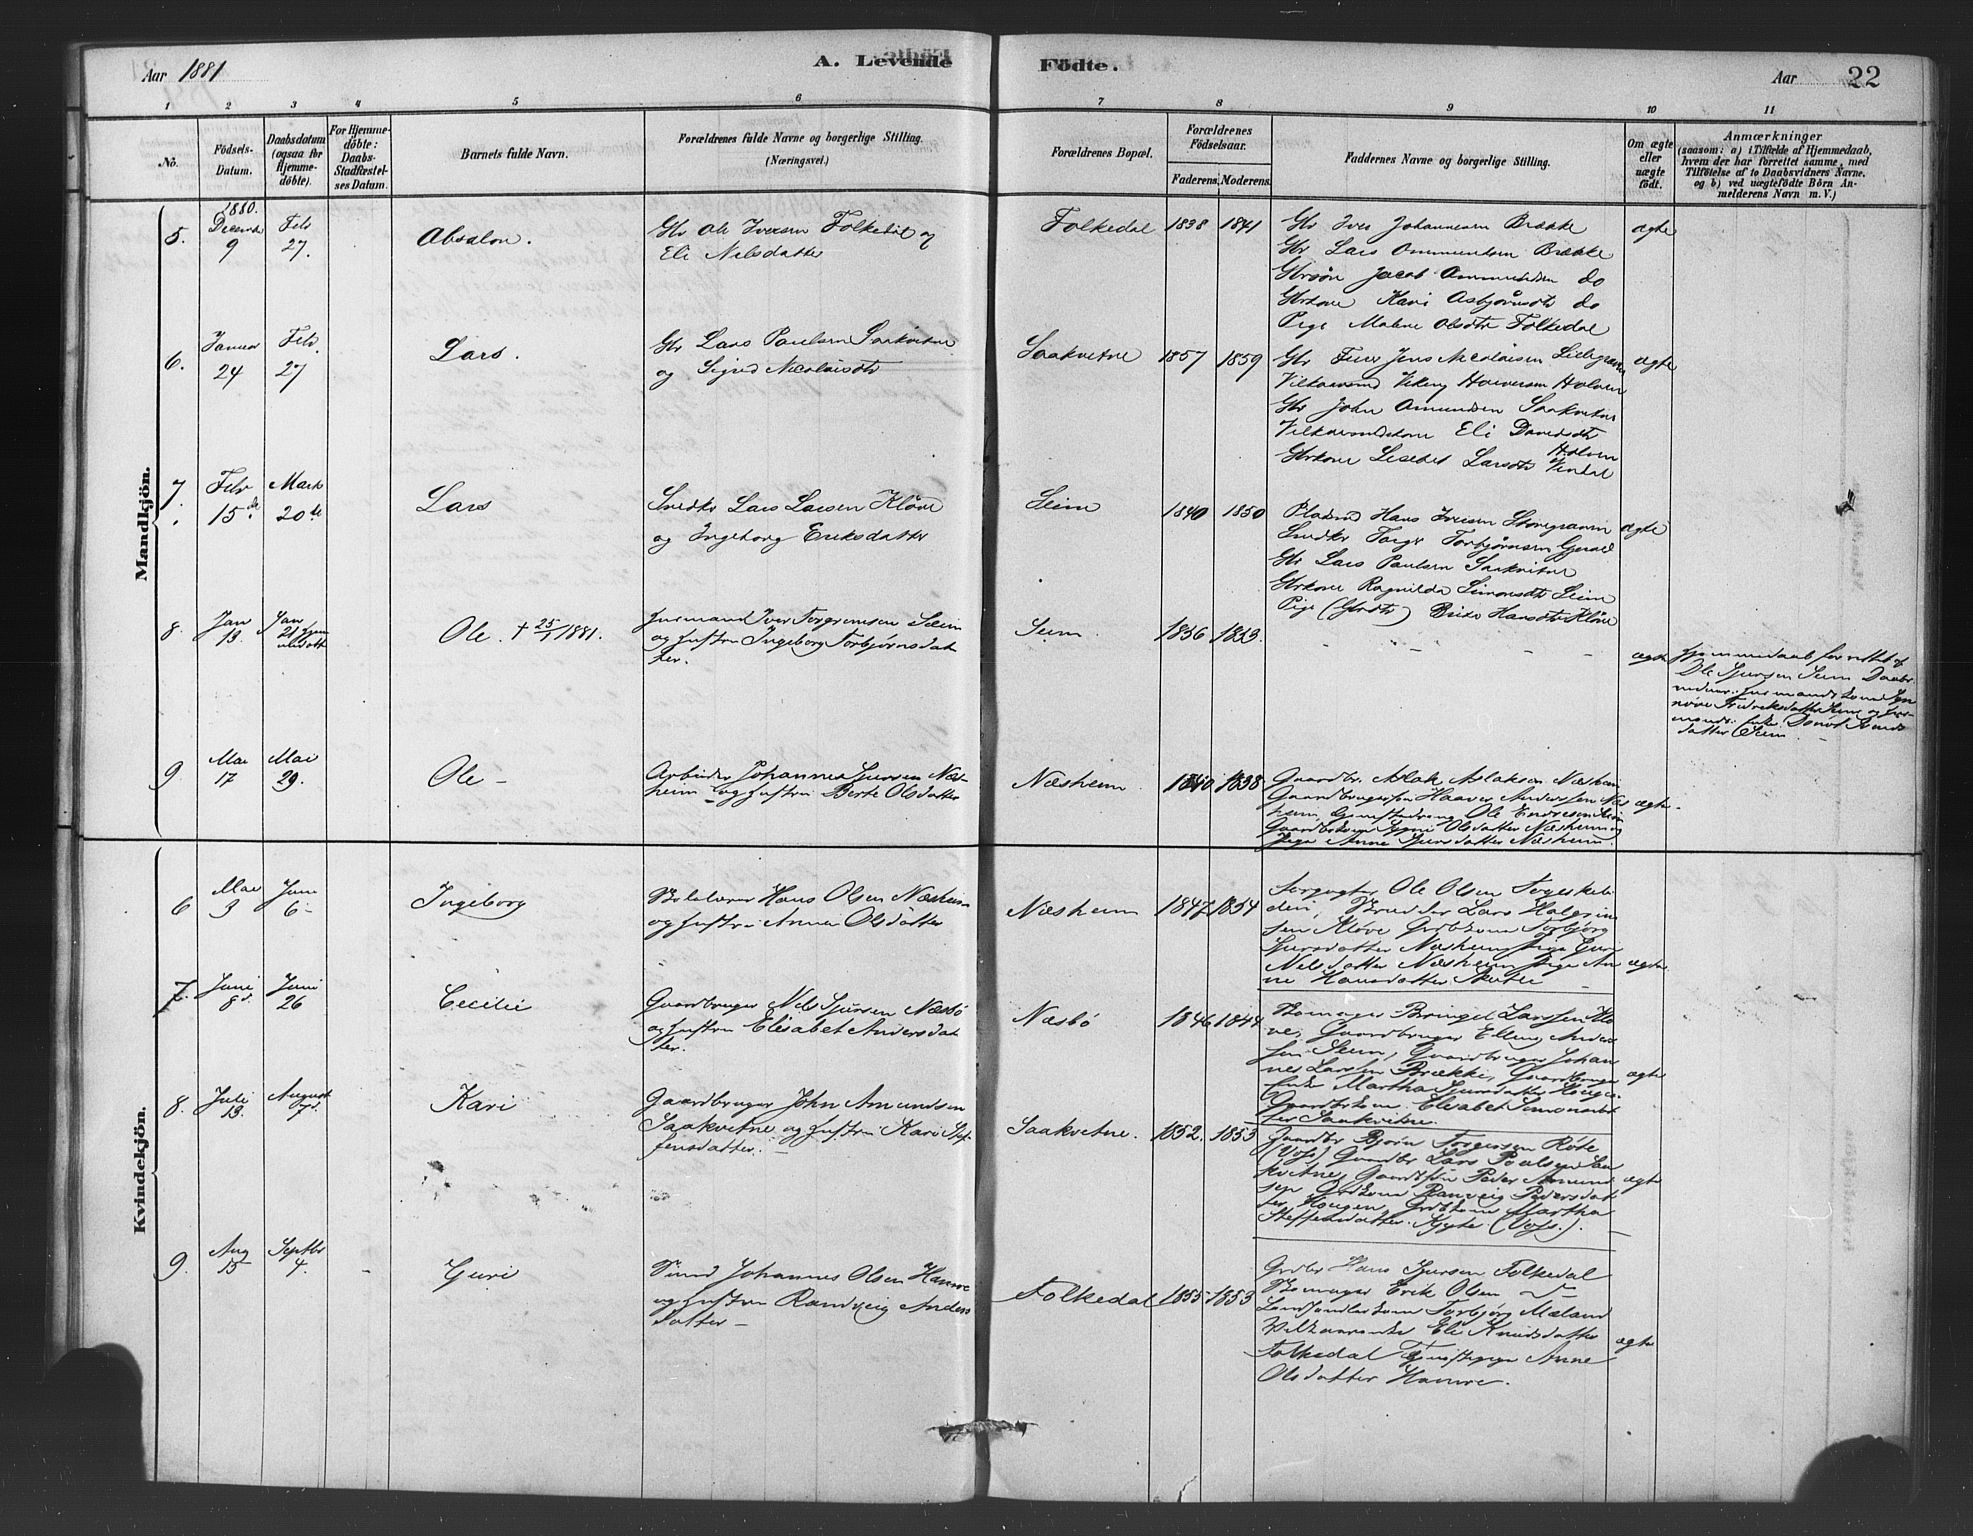 Aar 1881
A. Levende Fødte.
Aar 22
1 2 3 4 5 6 7 8 9 10 11
No.
Fødsels-
Datum.
Daabsdatum
(ogsaa for
Hjemme-
döbte).
For Hjemme-
döbte:
Daabs-
Stadfæstel-
ses Datum.
Barnets fulde Navn.
Forældrenes fulde Navne og borgerlige Stilling.
(Næringsvei.)
Forældrenes Bopæl.
Forældrenes
Födselsaar.
Faderens. Moderens.
Faddernes Navne og borgerlige Stilling.
Om ægte
eller
uægte
født.
Anmærkninger
(saasom: a) i Tilfælde af Hjemmedaab,
hvem der har forrettet samme, med
Tilföielse af to Daabsvidners Navne,
og b) ved uægtefödte Börn An-
melderens Navn m. V.)
Mandkjön.
5. 1880. December 9 Feb 27. Absalon.
Gbr Ole Iversen Folkedal og
Eli Nilsdatter
Folkedal 1838 1841
Gbr Iver Johannesen Brække
Gbr Lars Ommundsen Brække
Gbrsøn Jacob Ommundsen do
Gbrkone Kari Asbjørnsdtr do
Pige Malene Olsdtr Folkedal
ægte
6. Januar 24 Feb. 27 Lars.
Gbr Lars Paulsen Saakvitne
og Sigrid Nicolaisdtr
Saakvitne 1857 1859
Gbr Jens Nicolaisen Lillegraven
Vilkaarsmd Viking Haversen Holven
Gbr John Amundsen Saakvitne
Vilkaarmdskone Eli Davidsdtr
Holven
Gbrkone Lisebet Larsdtr
ægte
7. Feb 15de Marts 20de Lars
Snedkr Lars Larsen Kløve
og Ingeborg Eriksdatter
Seim 1840 1850
Pladsmd Hans Iversen Storegraven
Snedkr Torger Torbjørnsen
Gbr Lars Paulsen Saakvitne
Gbrkone Ragnilda Simonsdtr Seim
Pige (Gbrdtr) Brita Hansdtr Kløve
ægte
8. Jan 13. Jan 21 hjemmedøbt Ole. † 25/1 1881.
Husmand Iver Torgrimsen Seim
og Hustru Ingeborg Torbjørnsdat
ter.
Seim. 1836 1833.
ægte
Hjemmedaab forrettet af
Ole Sjursen Seim Daabs-
vidner: Husmandskone Syn-
nøve Fredriksdatter Seim og Hus-
mands
datter Seim. –
9. Mai 17 Mai 29. Ole –
Arbeider Johannes Sjursen Næs-
heim og Hustru Berte Olsdatter
Næsheim 1840 1838
Gaardbr. Aslak Aslaksen Næsheim
Gaardbrugersøn Haaver Anderssen Næs
heim, Ole Endresen Seim
Gaardbrkone Olsdatter Næsheim og
Pige Anne Sjursdatter Næsheim.
ægte.
Kvindekjön.
6 Mai 3 Juni 6 – Ingeborg
Skolelærer Hans Olsen Næsheim
og Hustru Anna Olsdatter
Næsheim 1847 1854
Ole Olsen
Lars Halgrim
sen Kløve Gbrkone Torbjørg
Sjursdatter Næsheim, Pige Guri
Nilsdatter Næsheim, Pige An
ne Hansdatter
ægte
7. Juni 8d. Juni 26 Cecilie
Gaardbruger Nils Sjursen Næsbø
og Hustru Elisabet Andersdat
ter.
Næsbø 1846 1844
Skomager Bringel Larssen Klø
ve, Gaardbruger Elling Anders
sen Seim, Gaardbruger Johan
nes Larsen Brække, Gaardbruger
enke Martha Sjursdatter
Gaardbrkone Elisabet Simonsdat
ter Saakvitne.
ægte
8. Juli 13. August 7d. Kari
Gaardbruger John Amundsen
Saakvitne og Hustru Kari Stef
fensdatter. –
Saakvitne. 1852. 1853
Gaardbr Bjørn Torgersen Røte
(Vos) Gaardbr Lars Poulsen Saa
kvitne, Gaardbrsøn Peder Amund
sen, Gbrkone Ranveig Pedersdat
ter, Gbrkone Martha
Steffensdatter (Vos.).
ægte
9. Aug 15 Septbr 4. Guri
Johannes Olsen Hamre
og Hustru Randveig Anders
datter –
Folkedal 1855 1853
Grdbr Hans Sjursen Folkedal
Skomager Erik Olsen
Landhandlerkone Torbjørg Mæland
Eli Knudsdatter
Folkedal Anne
Olsdatter Hamre.
ægte